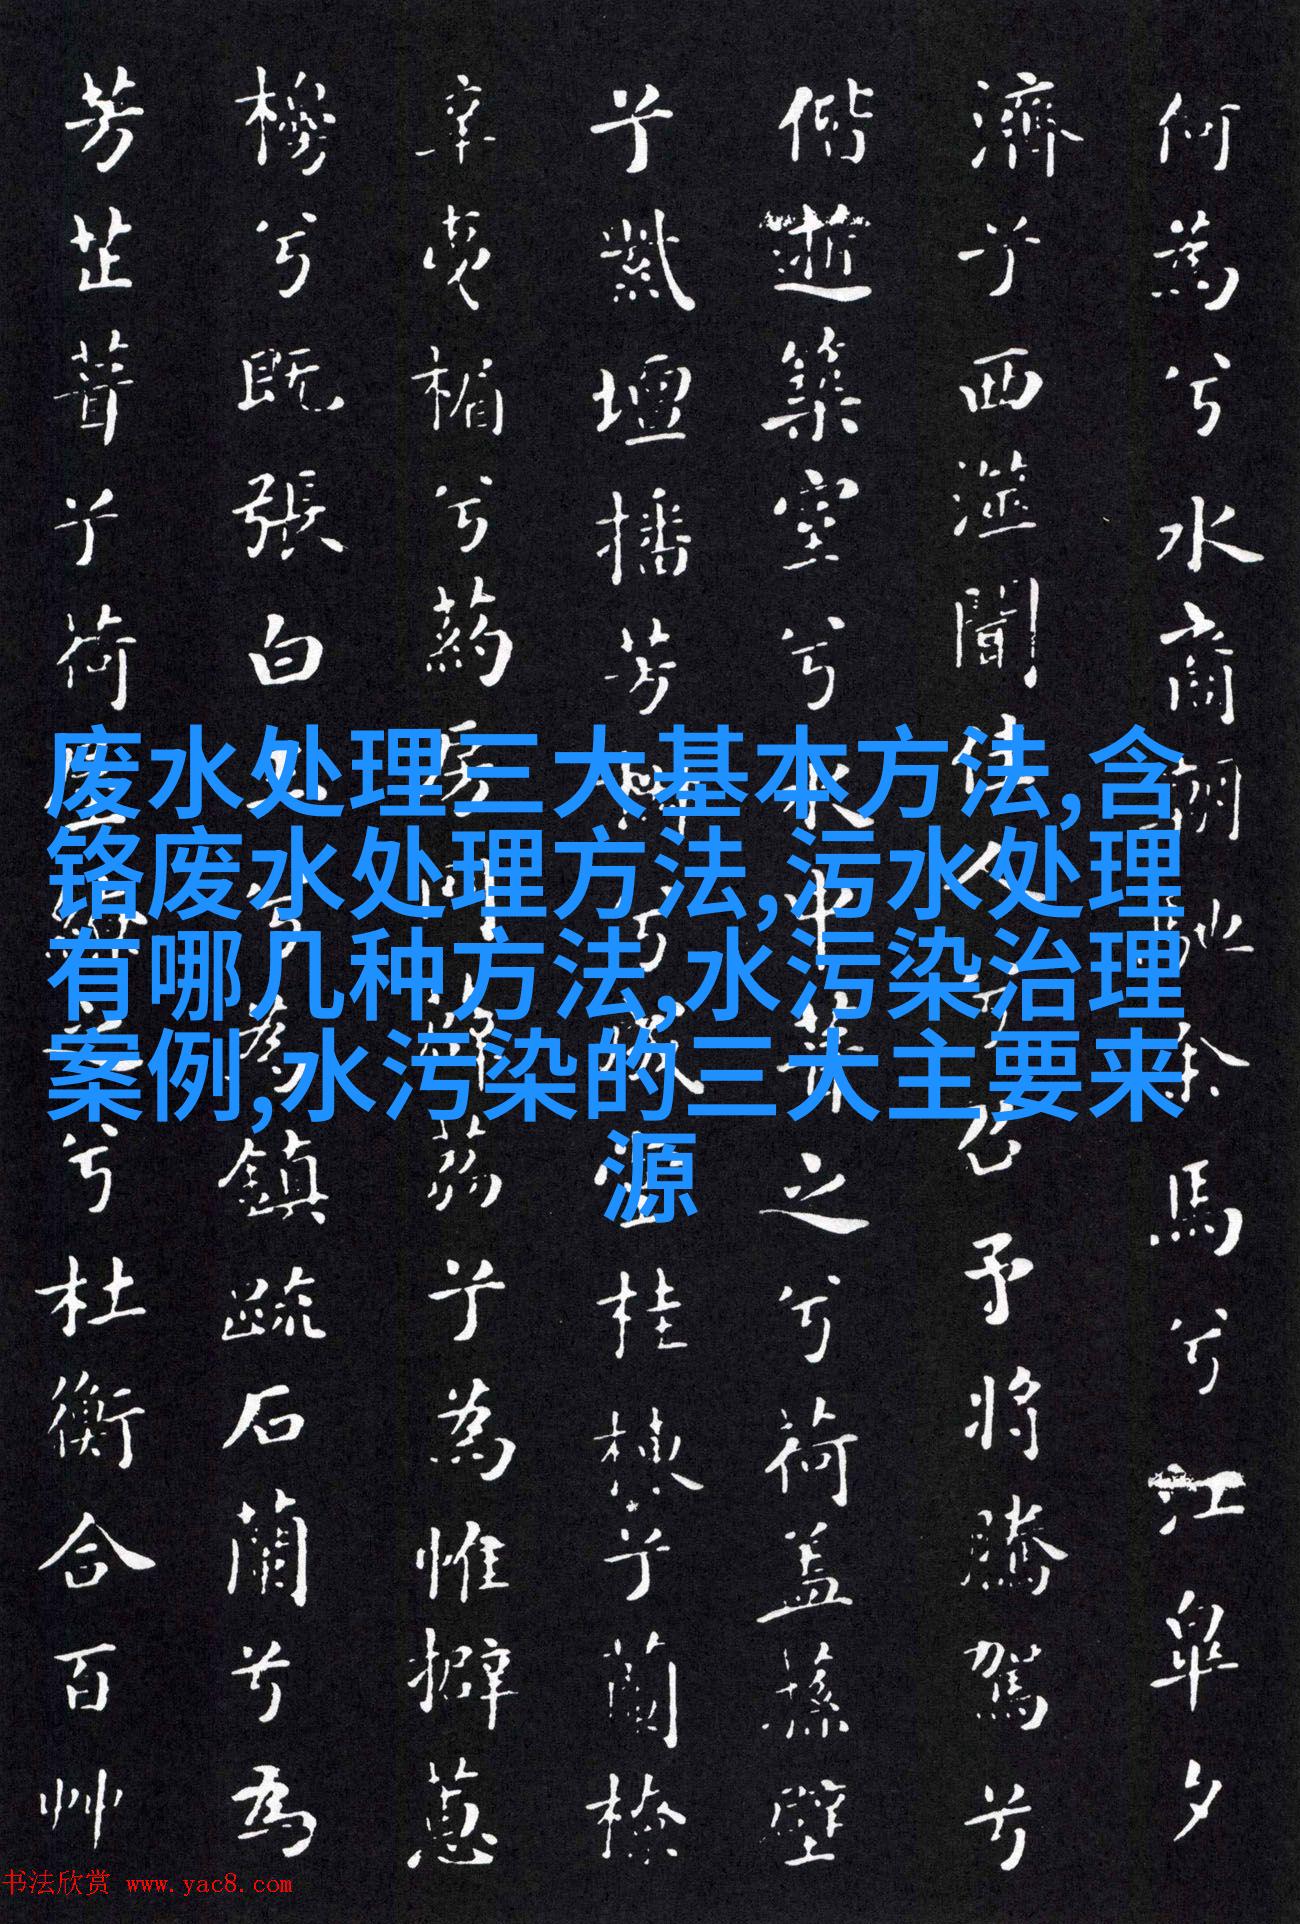 何為兮水裔朝馳余馬兮江皋夕
濟兮西澨聞佳人兮召予將騰駕兮
偕逝築室兮水中葺之兮荷蓋蓀壁
兮紫壇播芳椒兮成堂桂棟兮蘭橑
辛夷楣兮葯房罔薜荔兮為惟擗蕙
櫋兮既張白玉兮為鎮疏石蘭兮為
芳芷葺兮荷屋繚之兮杜衡合百艸
废水处理三大基本方法,含
铬废水处理方法,污水处理
有哪几种方法,水污染治理
案例,水污染的三大主要来
源
书法欣赏 www.yac8.com